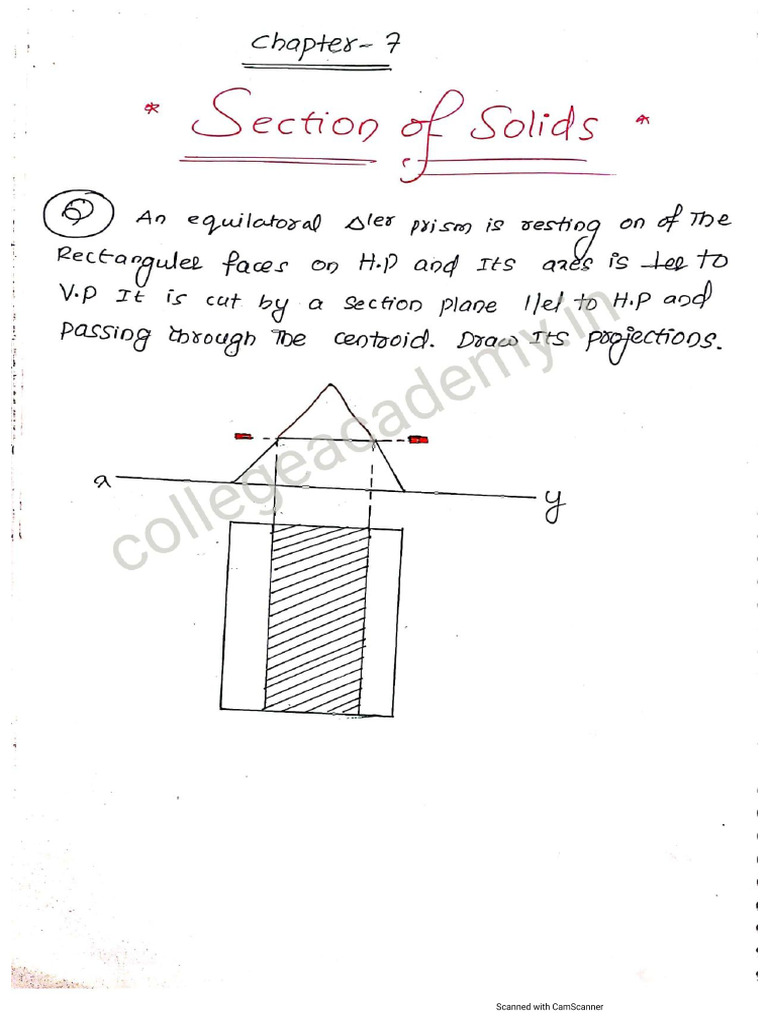 Chapter-7
* Section of Solids *
Q An equilatoral Δler prism is resting on of The
Rectanguler faces on H.P and Its axes is ⊥er to
V.P It is cut by a section plane ||el to H.P and
Passing through The centroid. Draw Its projections.
x
y
collegeacademy.in
Scanned with CamScanner